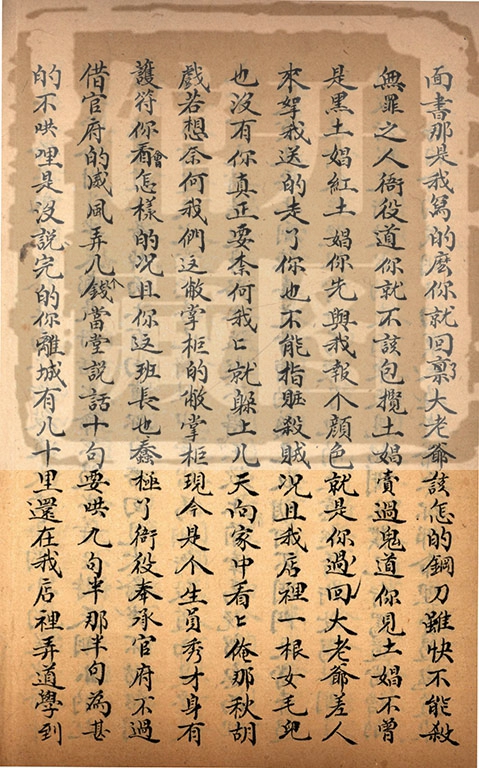 面書那是我寫的麽你就回禀大老爺該怎的鋼刀雖快不能殺
無罪之人衙役道你就不該包攬土娼賣過鬼道你見土娼不曾
是黑土娼紅土娼你先與我報个顔色就是你過回大老爺差人
來拏我送的走了你也不能指賍殺賊况且我店裡一根女毛兒
也没有你真正要柰何我匕就躱上几天向家中看匕俺那秋胡
戲若想奈何我們这敝掌柜的敝掌柜現今是个生員秀才身有
護符你看會怎樣的况且你这班長也蠢極了衙役奉承官府不過
借官府的威風弄几个錢當堂説話十句要哄九句半那半句為甚
的不哄哩是没説完的你離城有几十里還在我店裡弄道學到